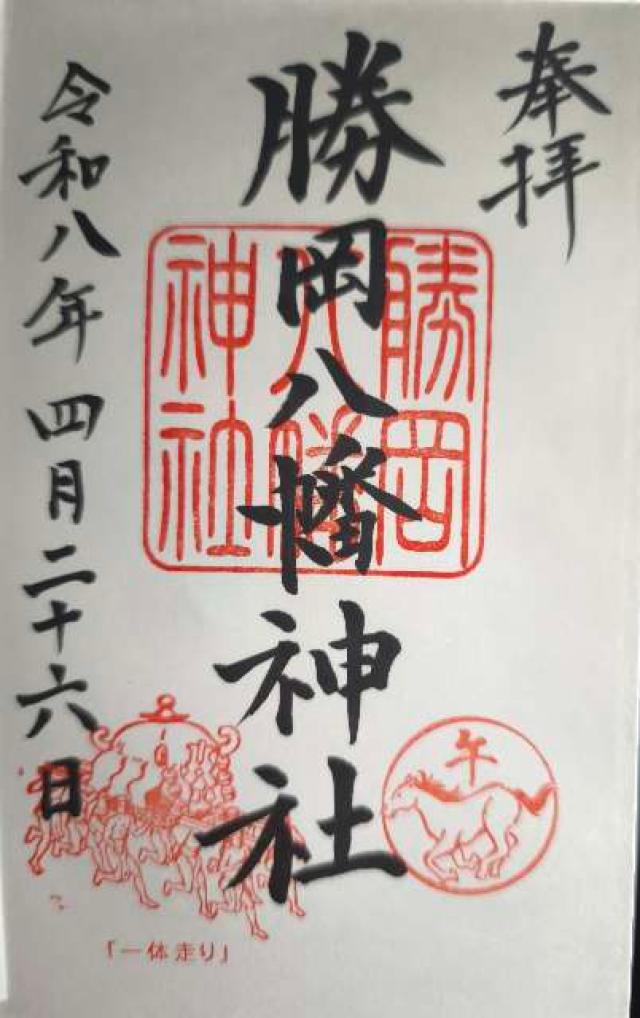 奉拝
勝岡八幡神社
勝岡
八幡
神社
令和八年四月二十六日
午
「一体走り」